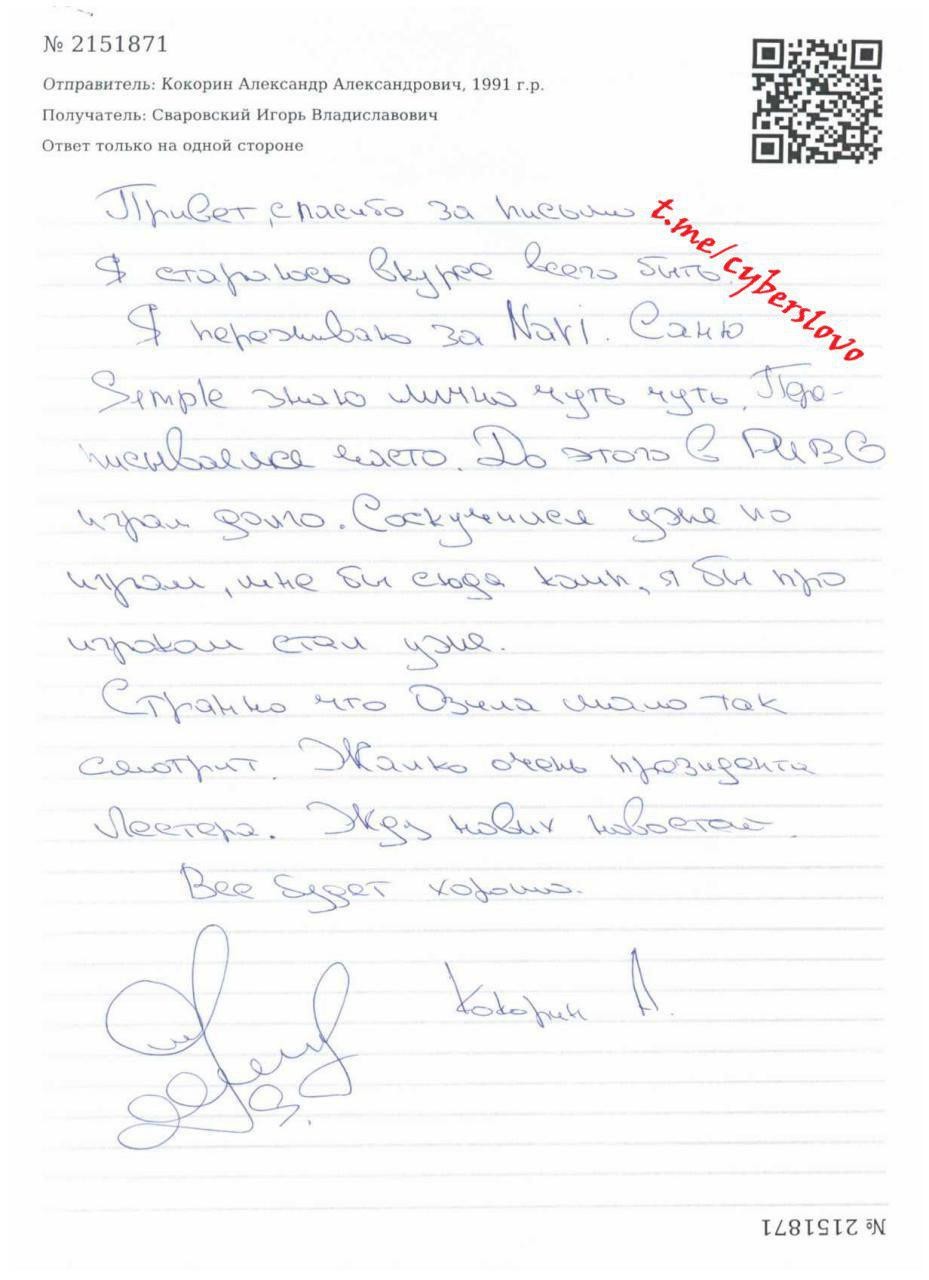 № 2151871
Отправитель: Кокорин Александр Александрович, 1991 г.р.
Получатель: Сваровский Игорь Владиславович
Ответ только на одной стороне
Привет, спасибо за письмо
t.me/cyberslovo
Я стараюсь вкурсе всего быть.
Я переживаю за Navi. Саню
Simple знаю лично чуть чуть. Пере-
писывался часто. До этого в PUBG
играл долго. Соскучился уже по
играм, мне бы сюда комп, я бы про
игроком стал уже.
Странно что Озила мало так
смотрит. Жалко очень президента
Лестера. Жду новых новостей.
Все будет хорошо.
Кокорин А.
№ 2151871